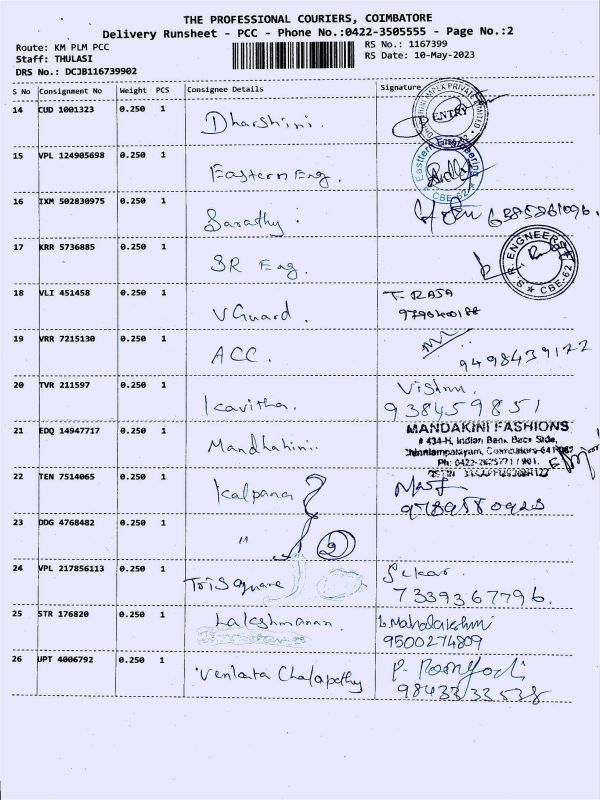 THE PROFESSIONAL COURIERS, COIMBATORE
Delivery Runsheet - PCC - Phone No.:0422-3505555 - Page No.:2
Route: KM PLM PCC
RS No.: 1167399
Staff: THULASI
RS Date: 10-May-2023
DRS No.: DCJB116739902
S No Consignment No Weight PCS Consignee Details Signature
14 CUD 1001323 0.250 1 Dharshini. ENTRY
15 VPL 124905698 0.250 1 Eastern Eng. Eastern Engineering CBE-62
16 IXM 502830975 0.250 1 Sarathy.
17 KRR 5736885 0.250 1 SR Eng. S.R. ENGNEERS CBE-62
18 VLI 451458 0.250 1 V Guard. T. RAJA
19 VRR 7215130 0.250 1 ACC. 9498439172
20 TVR 211597 0.250 1 Kavitha. Vishnu.
938459851
21 EDQ 14947717 0.250 1 Mandhahini. MANDAKINI FASHIONS
# 434-H, Indian Bank Back Side,
22 TEN 7514065 0.250 1 Kalpana
9789580923
23 DDG 4768482 0.250 1 " 2
24 VPL 217856113 0.250 1 Trisquare Sekar.
7339367796.
25 STR 176820 0.250 1 Lakshmanan. b. Mahalakshmi
9500274809
26 UPT 4006792 0.250 1 Venkata Chalapathy
9843333538